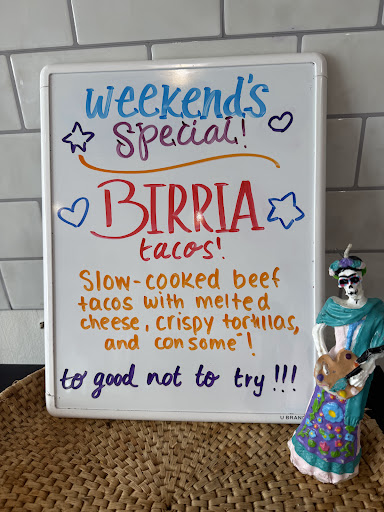 weekend's
special!
BIRRIA
tacos!
Slow-cooked beef
tacos with melted
cheese, crispy tortillas,
and consome!
to good not to try!!!
U BRAN